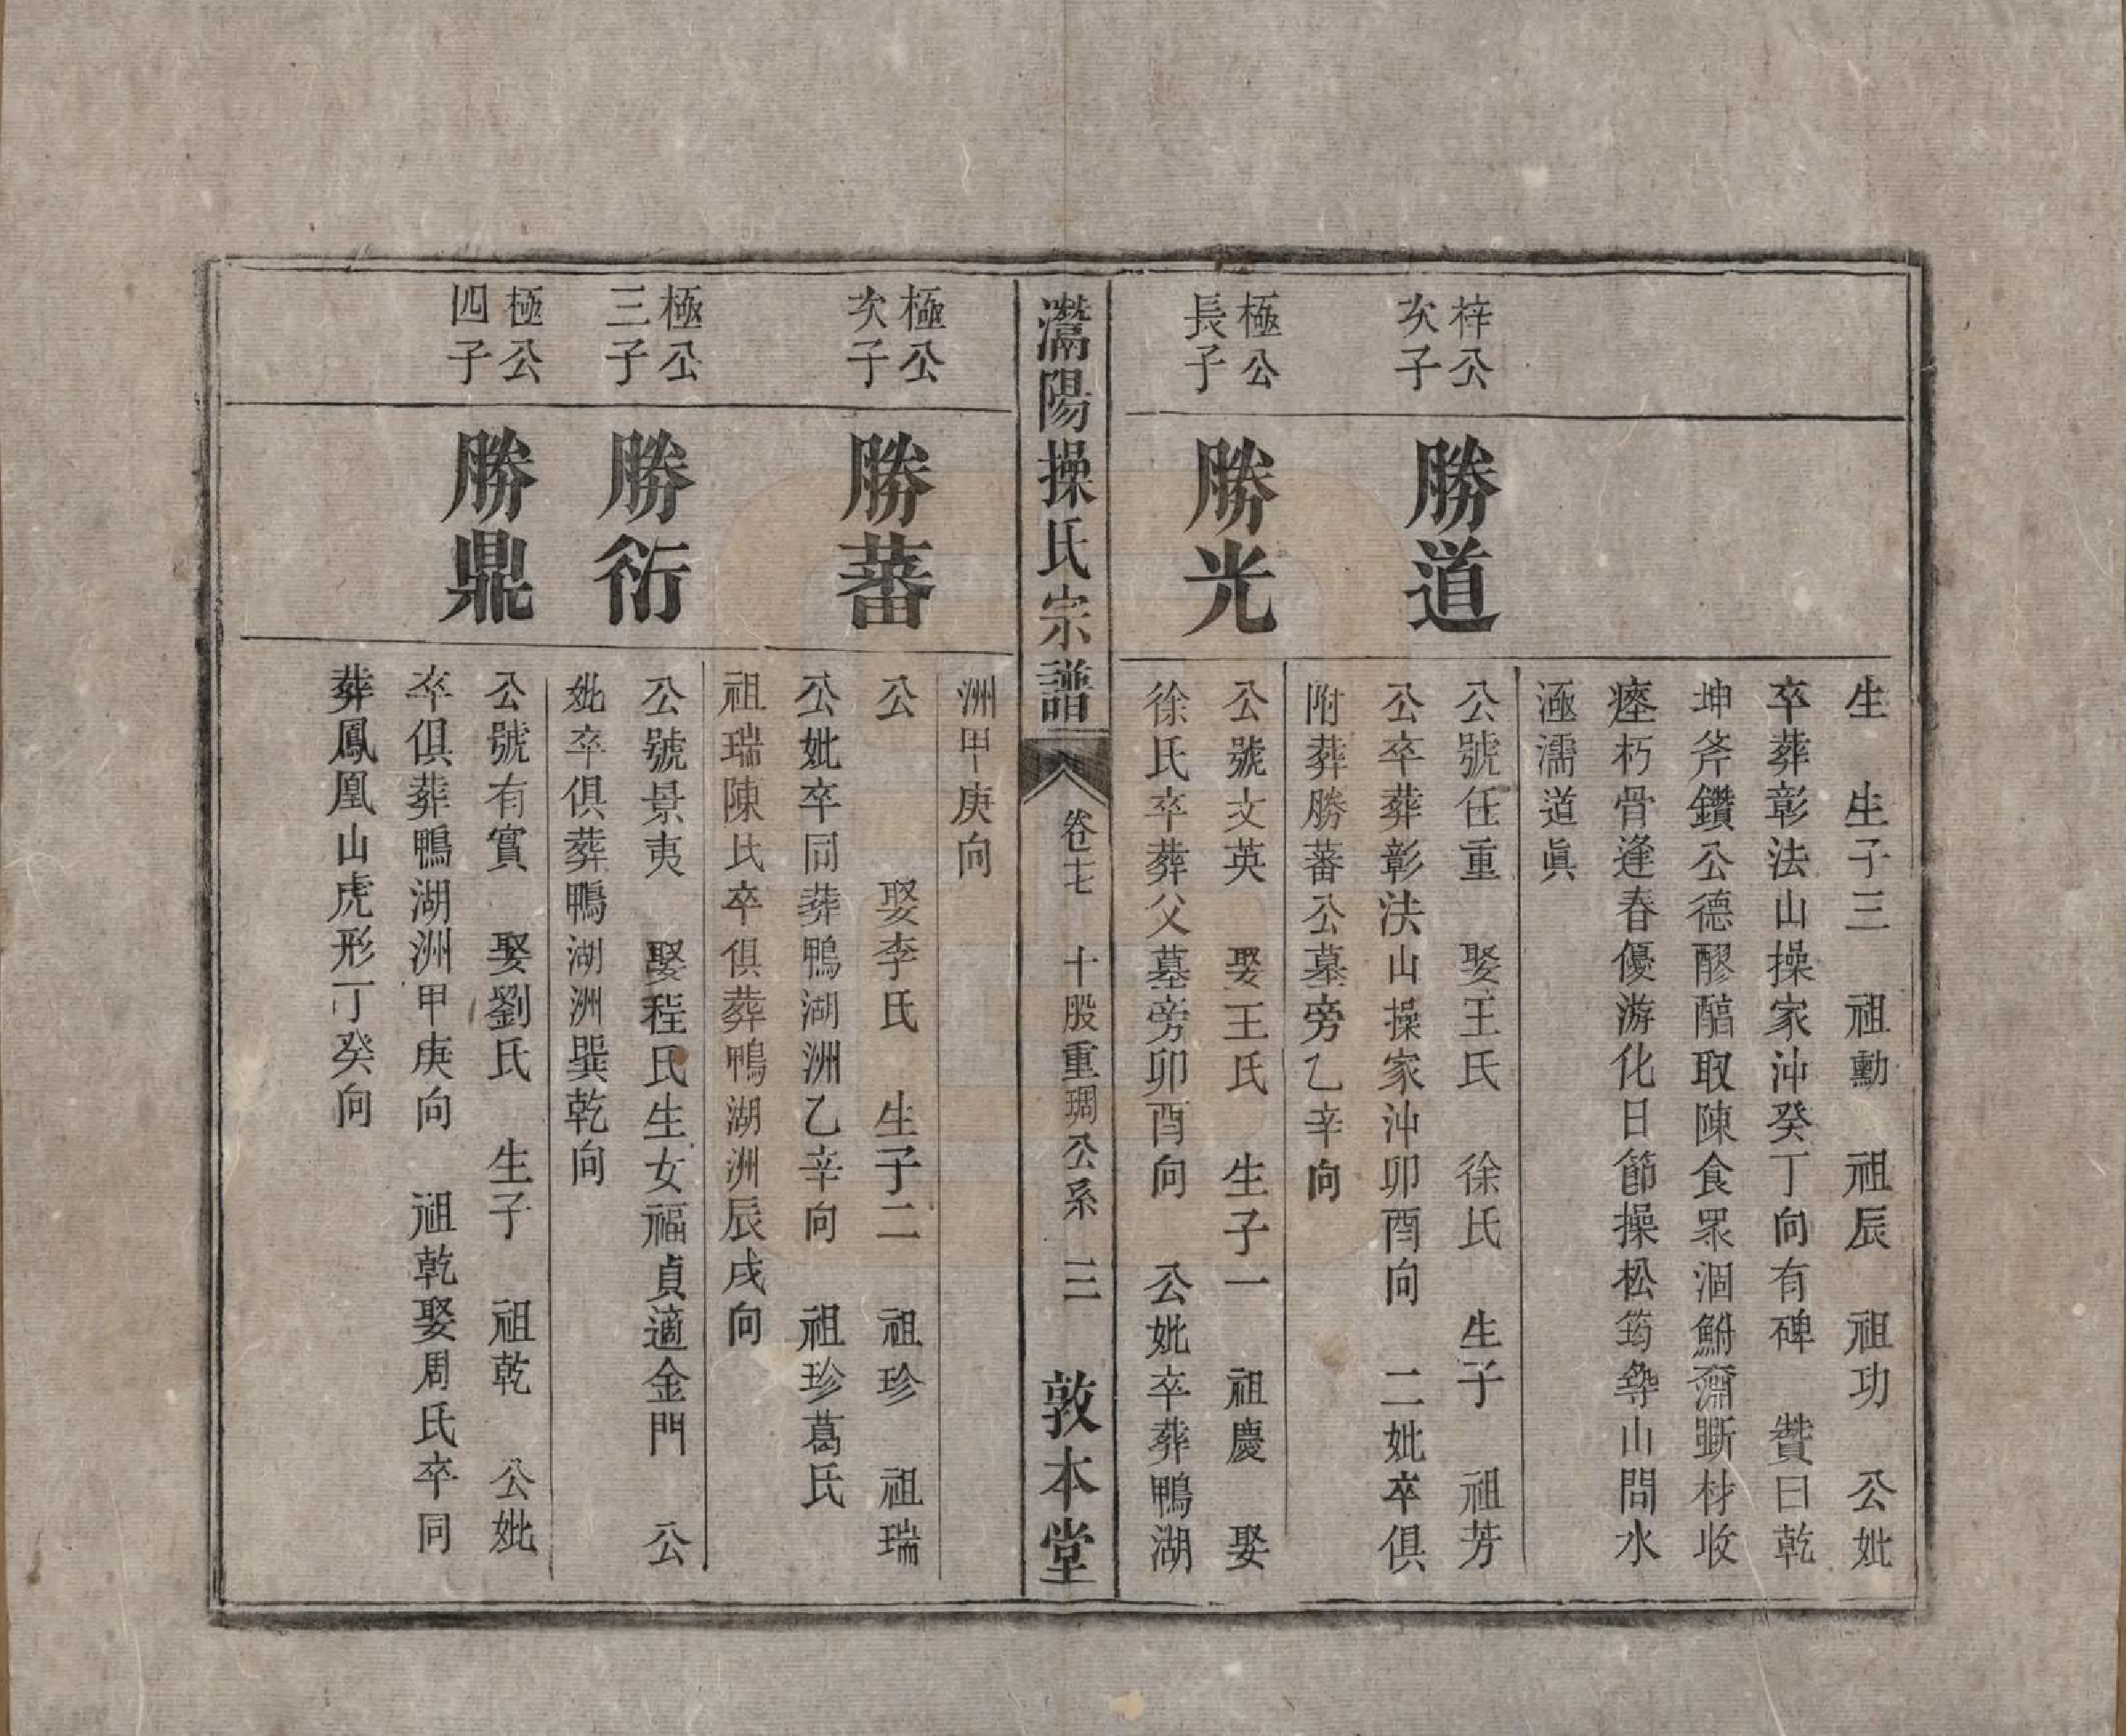 生　生子三　祖勳　祖辰　祖功　公妣
卒葬彰法山操家沖癸丁向有碑　贊曰乾
坤斧鑽公德醪醹取陳食眾涸鮒㵽斲材收
瘞朽骨逢春優游化日節操松筠尋山問水
涵濡道眞
梓公
次子
勝道
公號任重　娶王氏　徐氏　生子　祖芳
公卒葬彰法山操家沖卯酉向　二妣卒俱
附葬勝蕃公墓旁乙辛向
極公
長子
勝光
公號文英　娶王氏　生子一　祖慶　娶
徐氏卒葬父墓旁卯酉向　公妣卒葬鴨湖
灊陽操氏宗譜
卷七　十股重琱公系　三
敦本堂
洲甲庚向
極公
次子
勝蕃
公　娶李氏　生子二　祖珍　祖瑞
公妣卒同葬鴨湖洲乙辛向　祖珍葛氏
祖瑞陳氏卒俱葬鴨湖洲辰戌向
極公
三子
勝衍
公號景夷　娶程氏生女福貞適金門　公
妣卒俱葬鴨湖洲巽乾向
極公
四子
勝鼎
公號有實　娶劉氏　生子　祖乾　公妣
卒俱葬鴨湖洲甲庚向　祖乾娶周氏卒同
葬鳳凰山虎形丁癸向